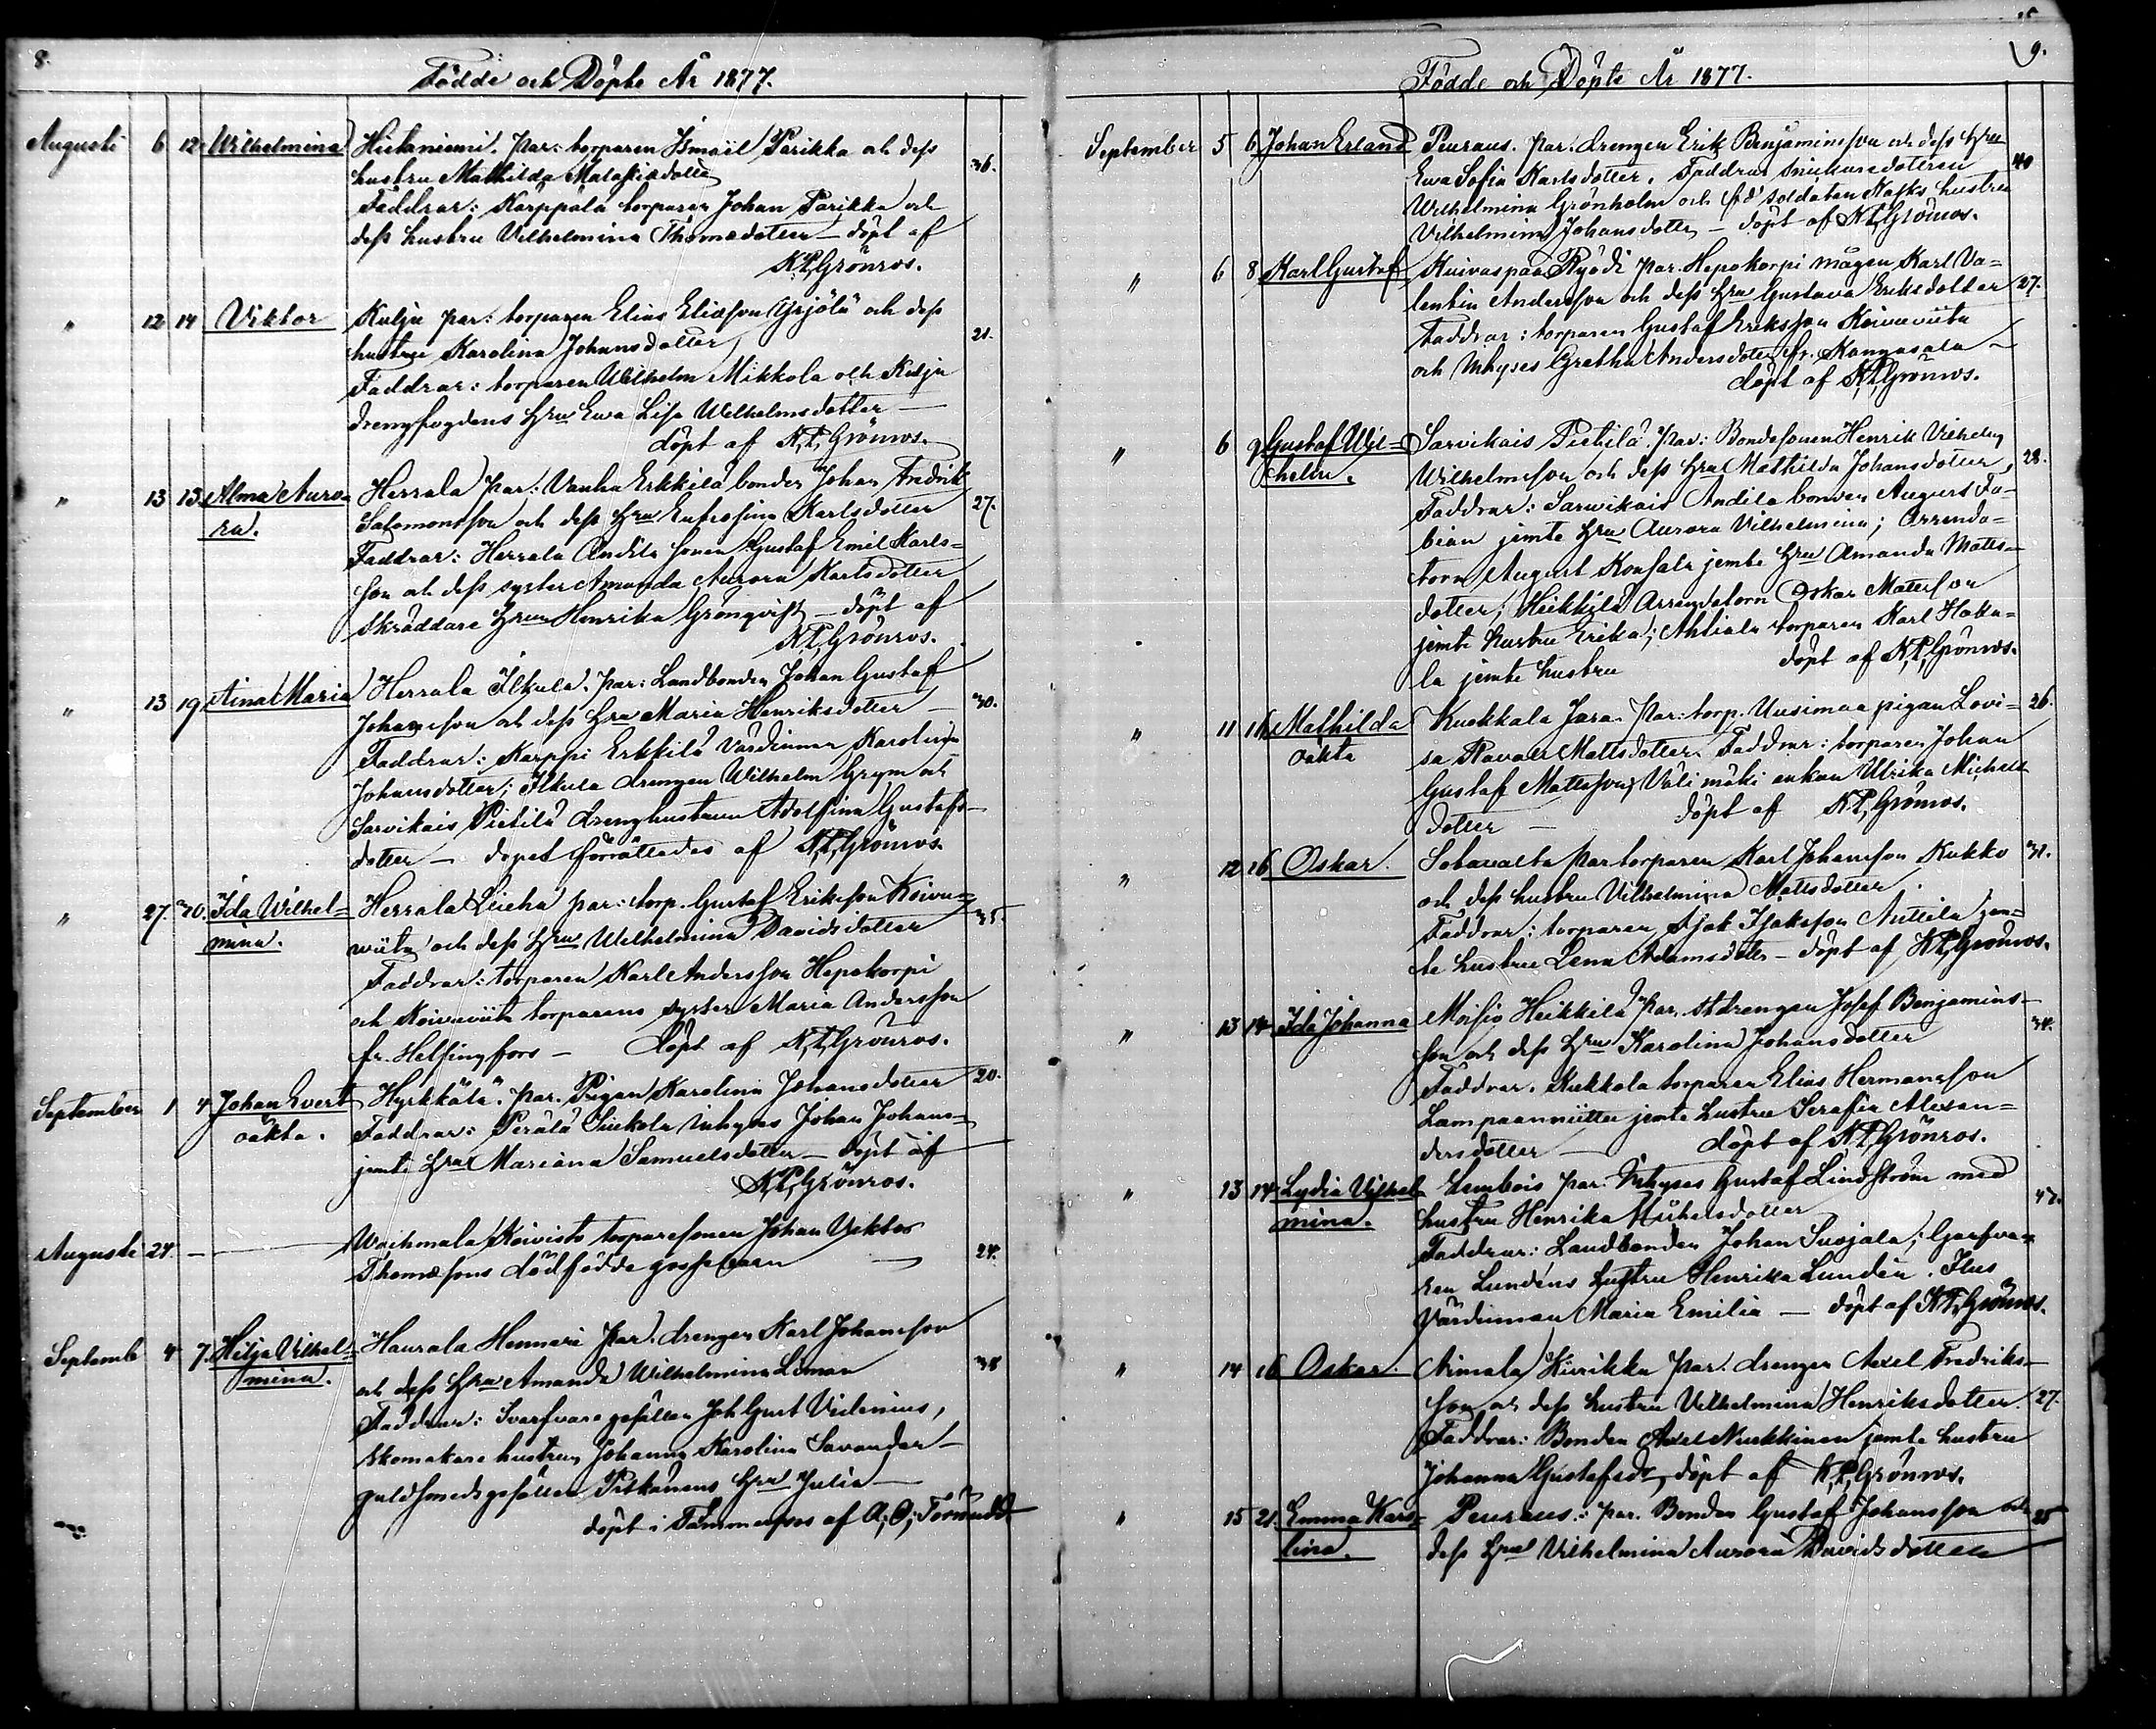 8.
Födde och Döpte År 1877.
Augusti 6 12 Wilhelmina Hietaniemi. par: torparen Ismaïl Parikka och dess 36.
hustru Mathilda Malakiadotter
Faddrar: Karppala torparen Johan Parikka och
dess hustru Vilhelmina Thomedotter — döpt af
K. P. Grönros.
" 12 14 Viktor Kulju par: torparen Elias Eliasson Yrjölä och dess 21.
hustru Karolina Johansdotter,
Faddrar: torparen Wilhelm Mikkola och Kulju
drengfogdens hru Ewa Lisa Wilhelmsdotter —
döpt af K. P. Grönros.
" 13 13 Alma Auro- Herrala par: Vanha Erkkilä bonden Johan Fredrik 27.
ra. Salomonsson och dess hru Eufrosina Karlsdotter
Faddrar: Herrala Andila sonen Gustaf Emil Karls=
son och dess syster Amanda Aurora Karlsdotter
skräddare hrun Henrika Grönqvist — döpt af
K. P. Grönros.
" 13 19 Aina Maria Herrala Ilkula. par: Landbonden Johan Gustaf 30.
Johansson och dess hru Maria Henriksdotter —
Faddrar: Karppi Erkkilä värdinnan Karolina
Johansdotter; Ilkula drengen Wilhelm Grym och
Sarvikais Pietilä drenghustrun Adolfina Gustafs-
dotter — dopet förrättades af K. P. Grönros.
" 27. 30. Ida Wilhel= Herrala Lieha par: torp. Gustaf Eriksson Koivu= 35.
mina. wiita och dess hru Wilhelmina Davidsdotter
Faddrar: torparen Karl Andersson Hepokorpi
och Koivuviita torparens syster Maria Andersson
fr. Helsingfors — döpt af K. P. Grönros.
September 1 4 Johan Evert Hyrkkälä. par. Pigan Karolina Johansdotter 20.
oäkta. Faddrar: Perälä Sinkola inhyses Johan Johans=
jemte hru Mariana Samuelsdotter — döpt af
K. P. Grönros.
Augusti 24. — Waihmala Koivisto torparesonen Johan Viktor 24.
Thomassons dödfödda gossebarn —
Septemb 4 7. Hilja Vilhel= Haurala Hennari par. drengen Karl Johansson 38
mina. och dess hru Amanda Wilhelmina Loman
Faddrar: Svarfvare gesällen Joh Gust Videnius,
skomakare hustrun Johanna Karolina Savander —
guldsmedsgesällen Pitkänens hru Julia —
döpt i Tammerfors af A. O. Törnudd
9.
Födde och Döpte År 1877.
September 5 6 Johan Erland Peuraus. par. drengen Erik Benjaminsson och dess hru 40
Ewa Sofia Karlsdotter. Faddrar snickaredottren
Wilhelmina Grönholm och f.d. soldaten Kasks hustru
Vilhelmina Johansdotter — döpt af K. P. Grönros.
" 6 8 Karl Gustaf Kuivaspää Ryödi par. Hepokorpi mågen Karl Va= 27.
lentin Andersson och dess hru Gustava Eriksdotter
Faddrar: torparen Gustaf Eriksson Koivuviita
och Inhyses Gretha Andersdoter fr. Kangasala —
döpt af K. P. Grönros.
" 6 9 Gustaf Wil= Sarvikais Pietilä. par: Bondesonen Henrik Vilhelm 28.
helm. Wilhelmsson och dess hru Mathilda Johansdotter,
Faddrar: Sarwikais Andila bonden August Fa=
bian jemte hru Aurora Vilhelmina; Arrenda=
torn August Konsala jemte hru Amanda Matts=
dotter; Heikkilä Arrendatorn Oskar Matsson
jemte hustru Erika; Ahtiala torparen Karl Haka=
la jemte hustru döpt af K. P. Grönros.
" 11 16 Mathilda Kuokkala Jara. Par: torp. Uusimaa pigan Lovi= 26.
oäkta sa Stava Mattsdotter. Faddrar: torparen Johan
Gustaf Mattsson; Välimäki enkan Ulrika Michels
dotter — döpt af K. P. Grönros.
" 12 16 Oskar. Sotavalta par torparen Karl Johansson Kukko 31.
och dess hustru Vilhelmina Mattsdotter.
Faddrar: torparen Isak Isaksson Anttila jem=
te hustru Lena Adamsdotter — döpt af K. P. Grönros.
" 13 14 Ida Johanna Moisio Heikkilä par. st.drengen Josef Benjamins= 34.
son och dess hru Karolina Johansdotter
Faddrar. Kukkola torparen Elias Hermansson
Lampaanniittu jemte hustru Serafia Alexan=
dersdotter — döpt af K. P. Grönros.
" 13 14 Lydia Vilhel- Lembois par. Inhyses Gustaf Lindström med 42.
mina. hustru Henrika Michelsdotter
Faddrar: Landbonden Johan Suojala; Garfva=
ren Lundéns hustru Henrika Lundén. Ilus
Värdinnan Maria Emilia — döpt af K. P. Grönros.
" 14 16 Oskar. Nimala Kurikka par. drengen Axel Fredriks= 27.
son och dess hustru Vilhelmina Henriksdotter.
Faddrar: Bonden Axel Nurkkinen jemte hustru
Johanna Gustafsdr, döpt af K. P. Grönros.
" 15 21. Emma Karo= Peuraus: par. Bonden Gustaf Johansson och 25
lina. dess hru Vilhelmina Aurora Davidsdotter